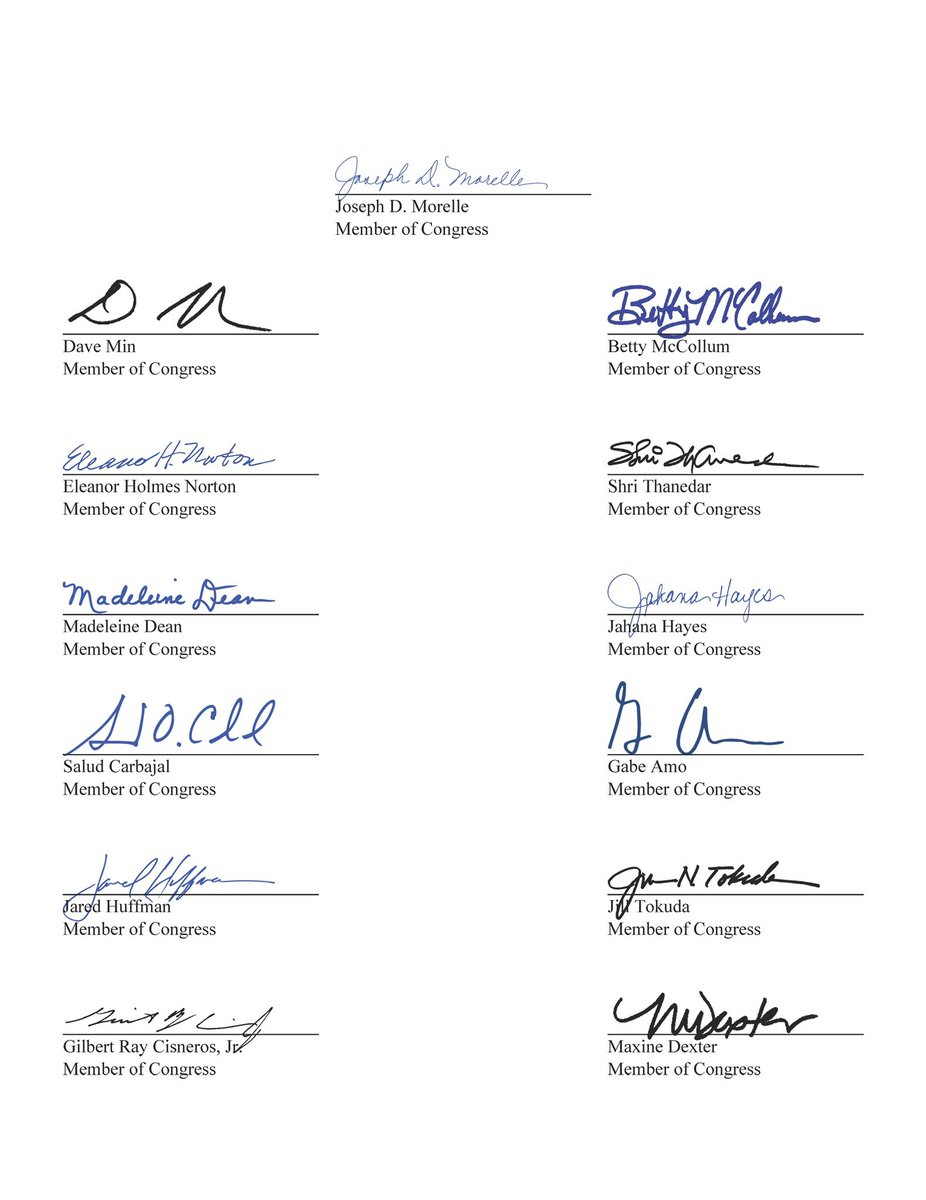 Joseph D. Morelle
Joseph D. Morelle
Member of Congress
Dave Min
Member of Congress
Betty McCollum
Betty McCollum
Member of Congress
Eleanor H. Norton
Eleanor Holmes Norton
Member of Congress
Shri Thanedar
Member of Congress
Madeleine Dean
Madeleine Dean
Member of Congress
Jahana Hayes
Jahana Hayes
Member of Congress
Salud Carbajal
Member of Congress
Gabe Amo
Member of Congress
Jared Huffman
Jared Huffman
Member of Congress
N Tokuda
Jill Tokuda
Member of Congress
Gilbert Ray Cisneros, Jr.
Member of Congress
MDexter
Maxine Dexter
Member of Congress